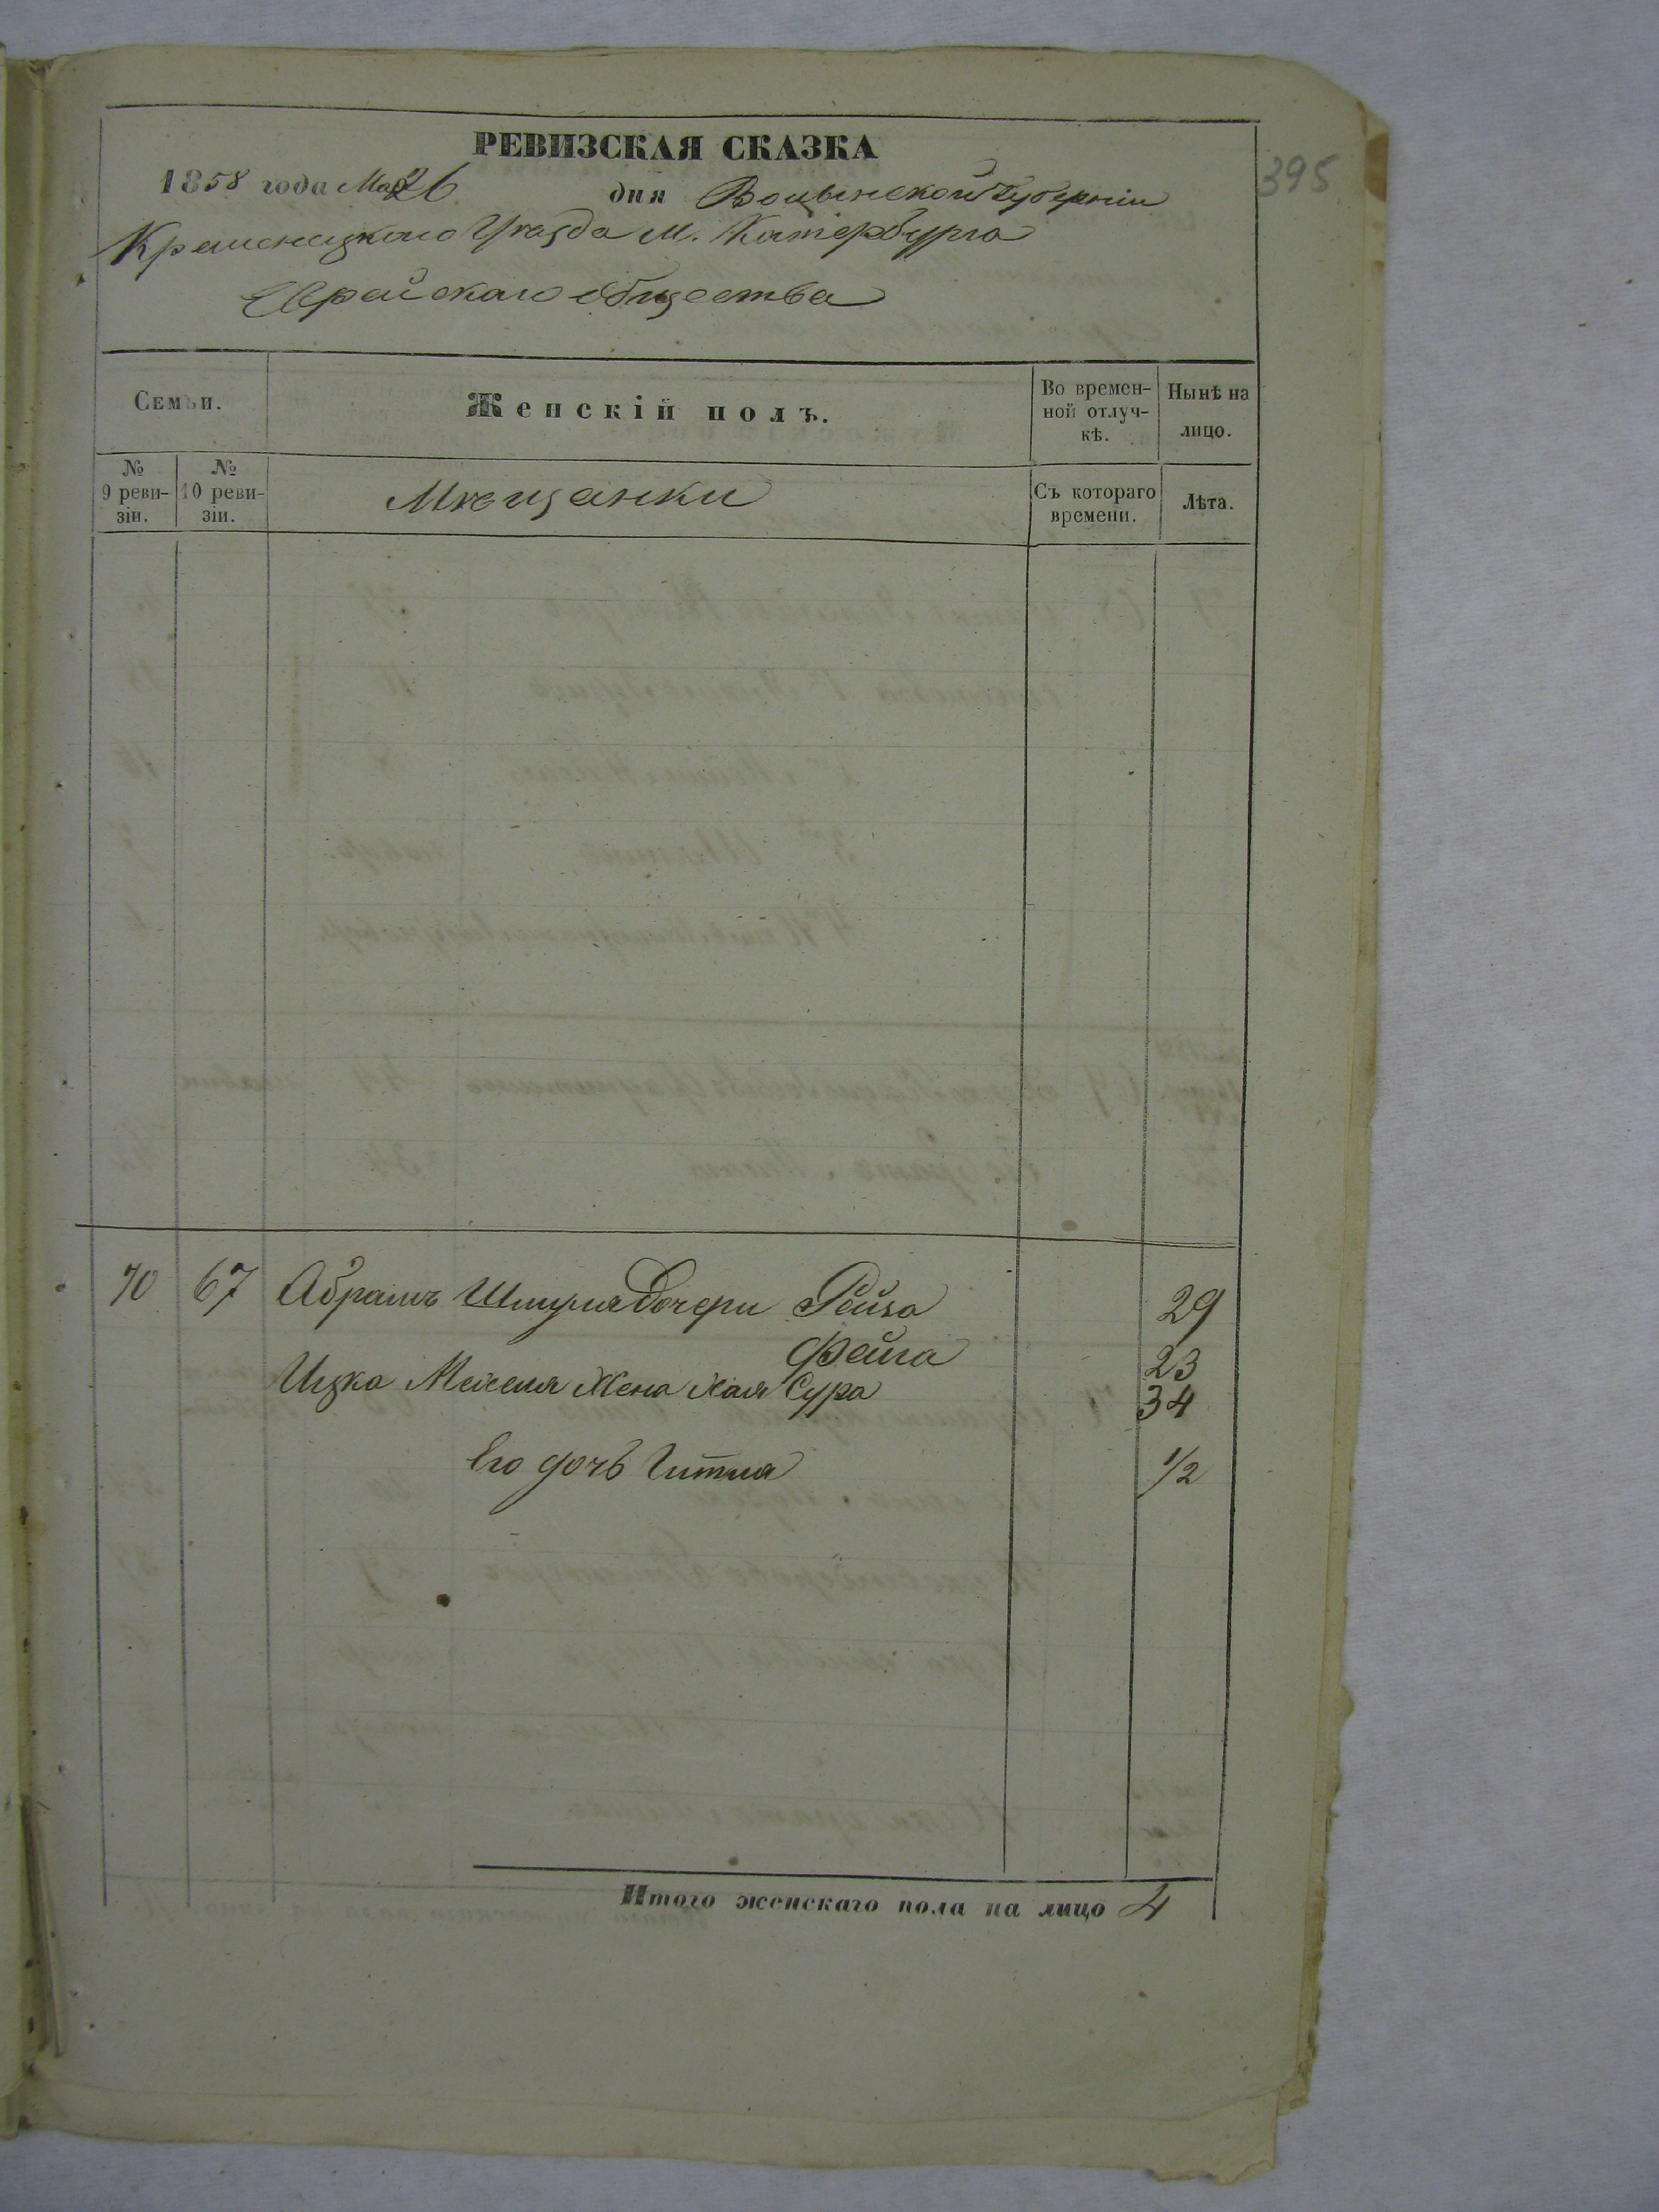 395
РЕВИЗСКАЯ СКАЗКА
1858 года Мая 26 дня Волынской Губернiи
Кременецкаго Уѣзда М. Катербурга
Еврейскаго общества
Семьи. Женскiй полъ. Во времен-ной отлуч-кѣ. Нынѣ на лицо.
№ 9 реви-зiи. № 10 реви-зiи. Мѣщанки Съ котораго времени. Лѣта.
70 67 Абрамъ Шмуля дочери Рейза 29
Фейга 23
Ицка Мехеля жена Хая Сура 34
Его дочь Гитля 1/2
Итого женскаго пола на лицо 4